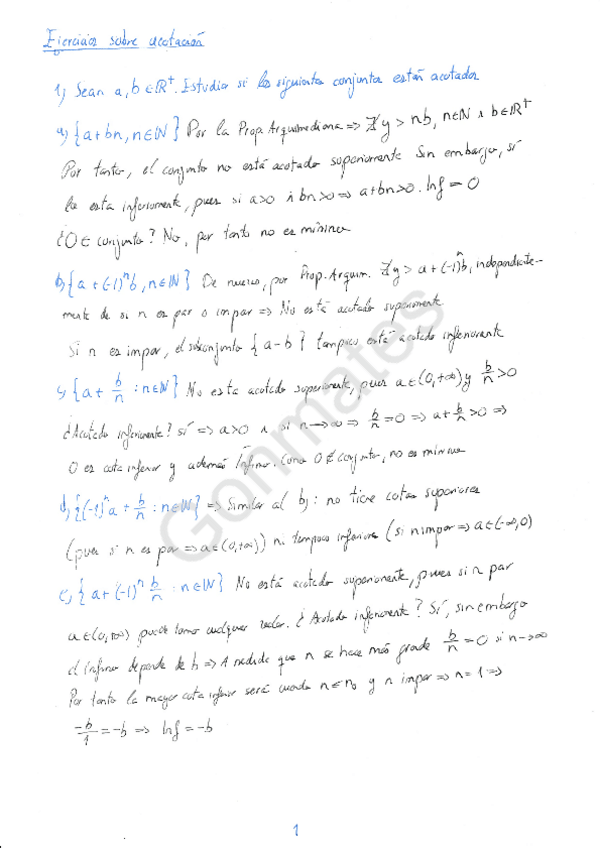 Ejercicios sobre acotación
1) Sean a, b ∈ ℝ⁺. Estudia si los siguientes conjuntos están acotados
a) {a+bn, n∈ℕ} Por la Prop. Arquimediana ⇒ ∄ y > nb, n∈ℕ ∧ b∈ℝ⁺
Por tanto, el conjunto no está acotado superiormente. Sin embargo, sí
lo esta inferiormente, pues si a>0 ∧ bn>0 ⇒ a+bn>0. Inf = 0
¿0 ∈ conjunto? No, por tanto no es mínimo
b) {a + (-1)ⁿb, n∈ℕ} De nuevo, por Prop. Arquim. ∄ y > a + (-1)ⁿb, independiente-
mente de si n es par o impar ⇒ No está acotado superiormente
Si n es impar, el subconjunto {a-b} tampoco está acotado inferiormente
c) {a + b/n : n∈ℕ} No esta acotado superiormente, pues a∈(0,+∞) y b/n >0
¿Acotado inferiormente? sí ⇒ a>0 ∧ si n→∞ ⇒ b/n = 0 ⇒ a + b/n >0 ⇒
0 es cota inferior y además ínfimo. Como 0 ∉ conjunto, no es mínimo
d) {(-1)ⁿa + b/n : n∈ℕ} ⇒ Similar al b) : no tiene cotas superiores
(pues si n es par ⇒ a∈(0,+∞)) ni tampoco inferiores (si n impar ⇒ a∈(-∞,0)
e) {a + (-1)ⁿ b/n : n∈ℕ} No está acotado superiormente, pues si n par
a∈(0,+∞) puede tomar cualquier valor. ¿Acotado inferiormente? Sí, sin embargo
el ínfimo depende de b ⇒ A medida que n se hace más grande b/n = 0 si n→∞
Por tanto la mayor cota inferior será cuando n∈ℕ y n impar ⇒ n=1 ⇒
-b/1 = -b ⇒ Inf = -b
Gonmates
1